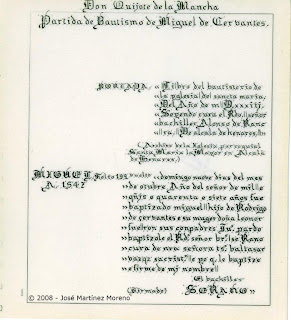 Don Quijote de la Mancha
Partida de Bautismo de Miguel de Cervantes.
PORTADA. « Libro del bautisterio de
la yglesia del sancta maria,
Del Año de m
Syendo cura el Rdo. señor
bachiller Alonso de
De alcala de henares.
(Archivo de la Iglesia parroquial
Santa María la Mayor en Alcalá
de Henares.)
MIGUEL Folio 192 « domingo nueve dias del mes
A. 1547 de octubre. Año del señor de mill e
qujs.º quarenta e siete años fue
baptizado miguel hijo de Rodrigo
de cervantes e su muger doña leonor
fueron sus conpadres Ju.º pardo
baptizole el Rdº. señor br.
cura de nra señora ts.º baltasar
sacrist.º e yo q. le baptize
e firme de mi nombre
El bachiller
(Firmado) SERANO »
© 2008 - José Martínez Moreno